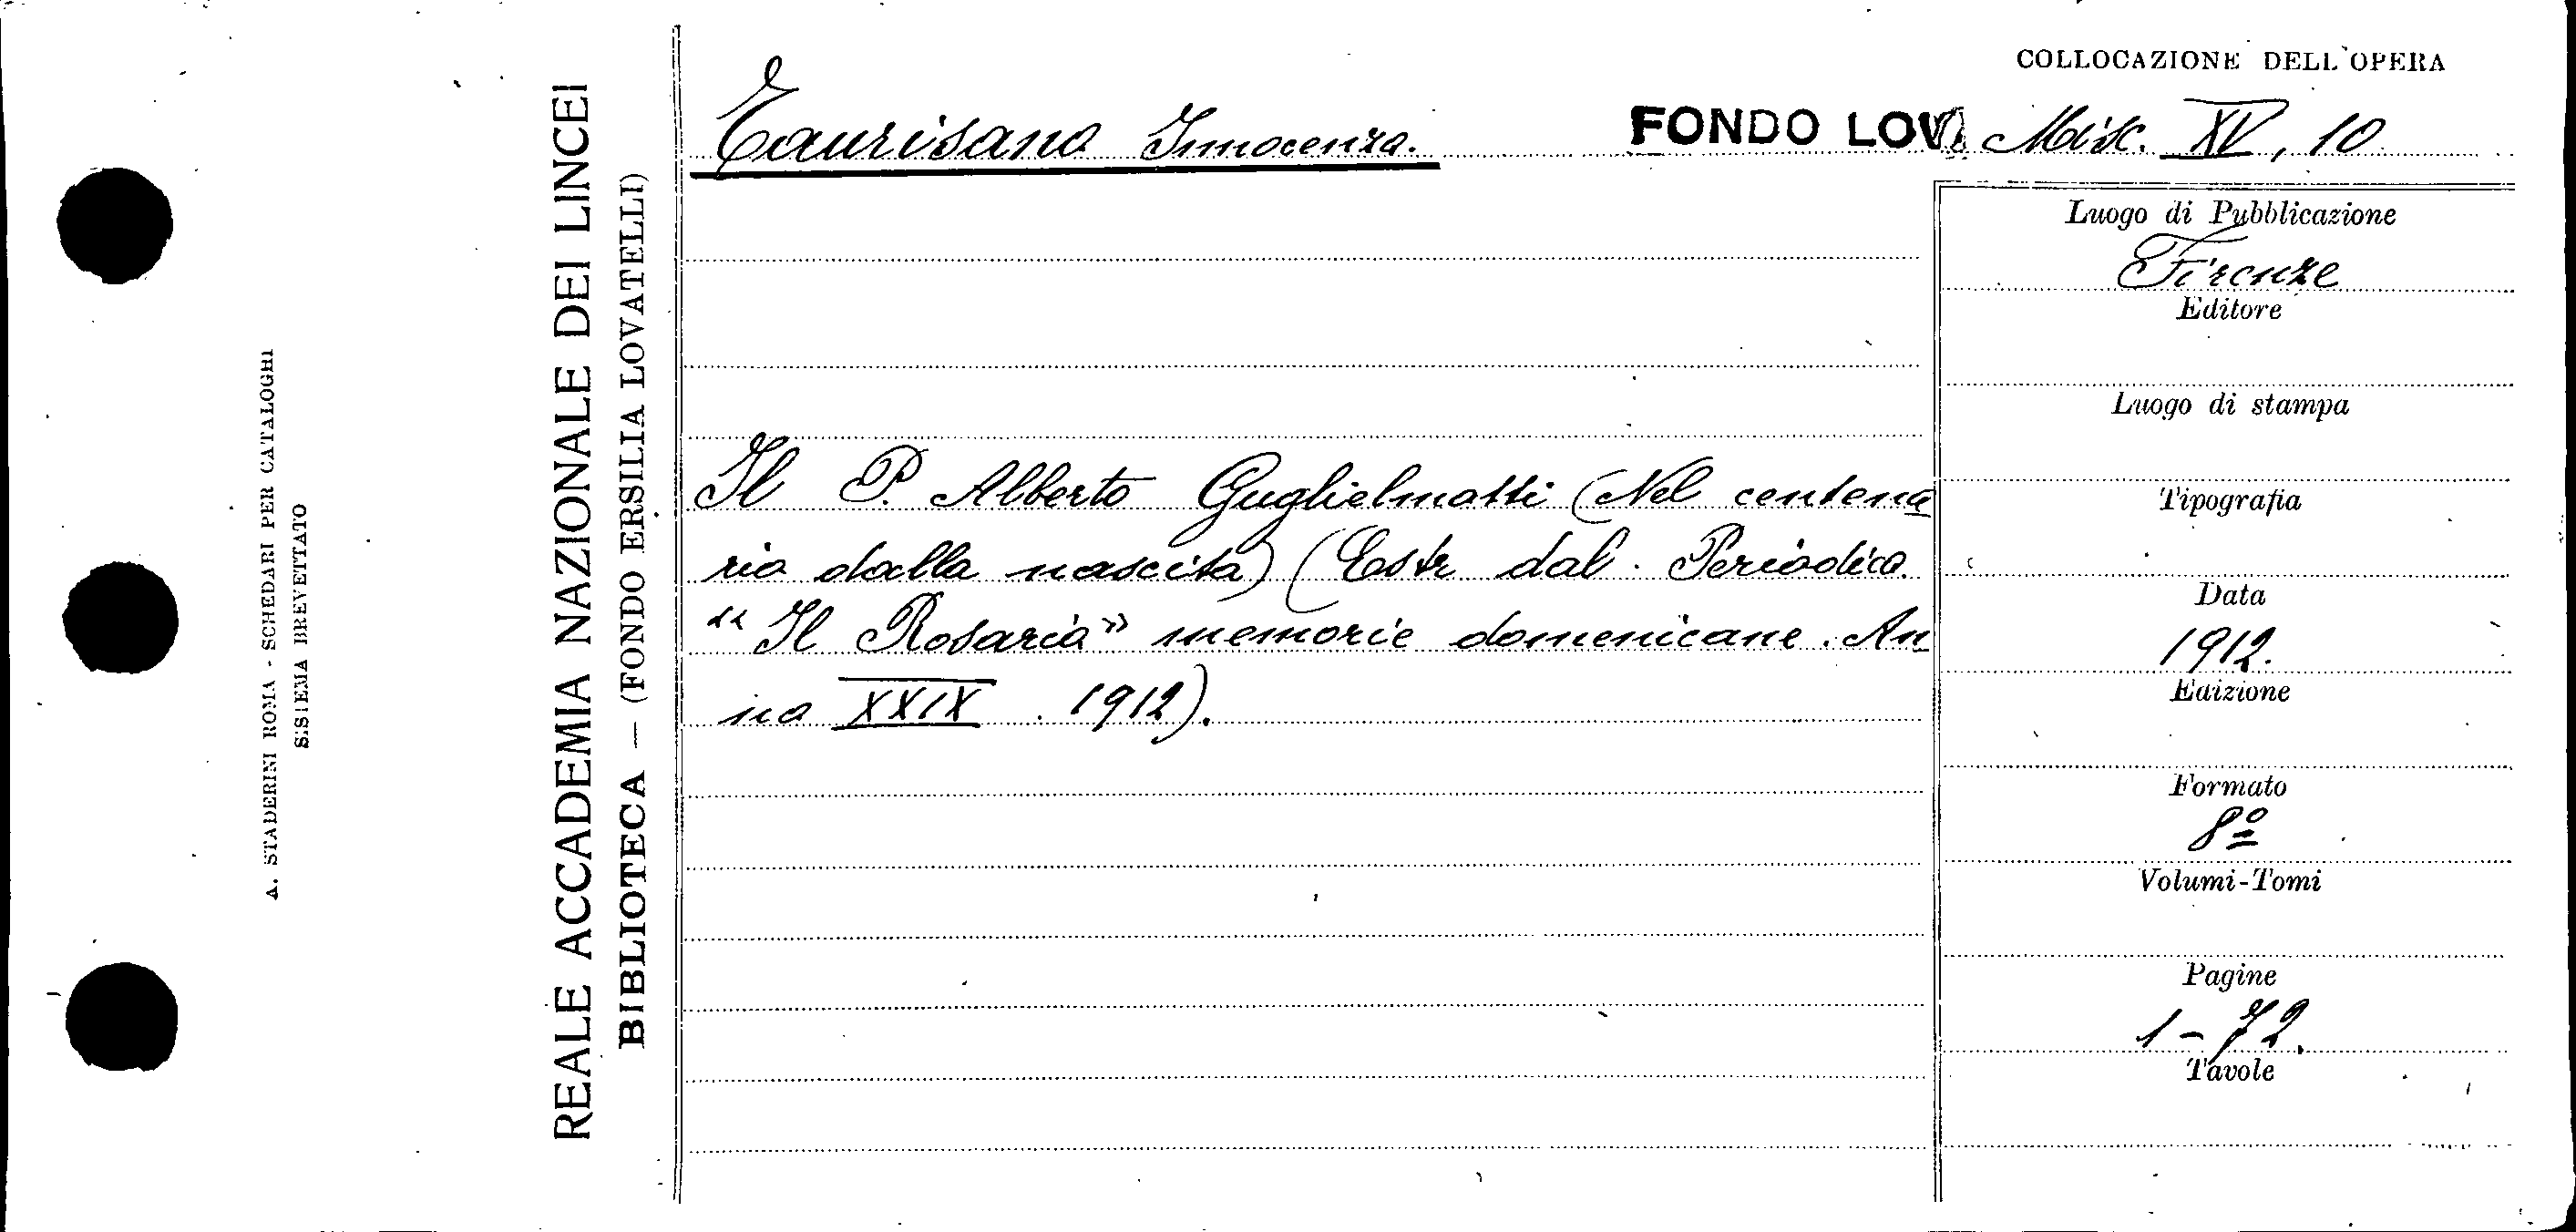 COLLOCAZIONE DELL'OPERA
Taurisano Innocenzo.
FONDO LOV. Misc. XV, 10
Luogo di Pubblicazione
Firenze
Editore
Luogo di stampa
Tipografia
Data
1912.
Edizione
Formato
8º
Volumi-Tomi
Pagine
1-72.
Tavole
Il P. Alberto Guglielmotti (Nel centena
rio dalla nascita) (Estr dal. Periodico
"Il Rosario" memorie domenicane. An
no XXIX. 1912).
REALE ACCADEMIA NAZIONALE DEI LINCEI
BIBLIOTECA — (FONDO ERSILIA LOVATELLI)
A. STADERINI ROMA - SCHEDARI PER CATALOGHI
SISTEMA BREVETTATO